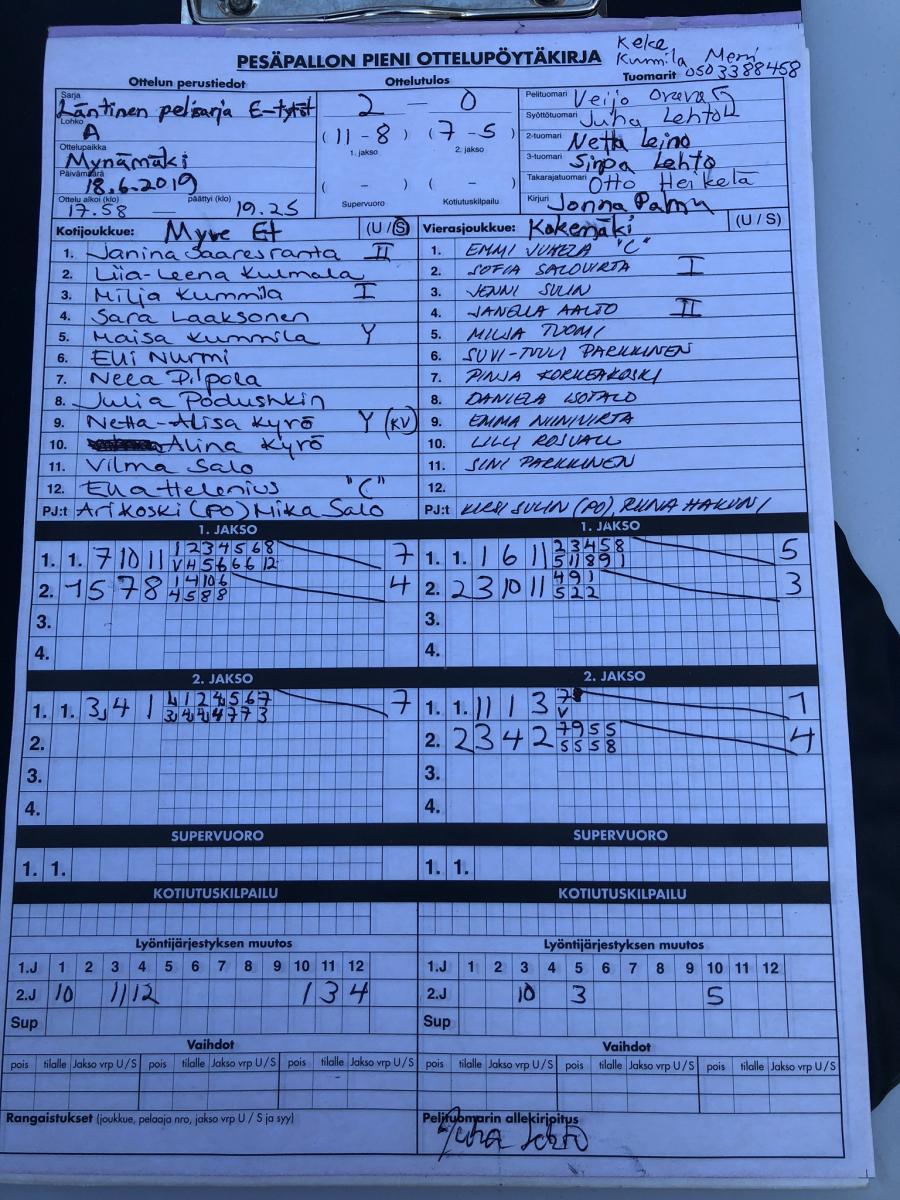 PESÄPALLON PIENI OTTELUPÖYTÄKIRJA
Keke
Kummila Meni
0503388458
Ottelun perustiedot Ottelutulos Tuomarit
Sarja
Läntinen pelisarja E-tytöt
Lohko
A
Ottelupaikka
Mynämäki
Päivämäärä
18.6.2019
Ottelu alkoi (klo) päättyi (klo)
17.58 — 19.25
2 — 0
(11-8) (7-5)
1. jakso 2. jakso
( - ) ( - )
Supervuoro Kotiutuskilpailu
Pelituomari Veijo
Syöttötuomari Juha Lehto
2-tuomari Netta Leino
3-tuomari Sirpa Lehto
Takarajatuomari Otto Heikelä
Kirjuri Jonna Palmu
Kotijoukkue: Myve Et (U / S)
1. Janina Saaresranta II
2. Liia-Leena Kulmala
3. Milja Kummila I
4. Sara Laaksonen
5. Maisa Kummila Y
6. Elli Nurmi
7. Neea Pilpola
8. Julia Podushkin
9. Netta-Alisa Kyrö Y (KV)
10. Alina Kyrö
11. Vilma Salo
12. Ella Helenius "C"
PJ:t Ari Koski (PO) Mika Salo
Vierasjoukkue: Kokemäki (U / S)
1. EMMI JUHELA "C"
2. SOFIA SALOVIRTA I
3. JENNI SULIN
4. JANELLA AALTO II
5. MILJA TUOMI
6. SUVI-TUULI PARKKINEN
7. PINJA KORKEAKOSKI
8. DANIELA ISOTALO
9. EMMA NIINIVIRTA
10. LILLI ROSVALL
11. SINI PARKKINEN
12.
PJ:t SULIN (PO),
1. JAKSO
1. 1. 7 10 11 1 2 3 4 5 6 8 7
V 4 5 6 6 6 12
2. 1 5 7 8 1 4 10 6 4
4 5 8 8
3.
4.
1. JAKSO
1. 1. 1 6 11 2 3 4 5 8 5
5 11 8 9 1
2. 2 3 10 11 4 9 1 3
5 2 2
3.
4.
2. JAKSO
1. 1. 3 4 1 4 1 2 4 5 6 7 7
3 4 4 4 7 7 3
2.
3.
4.
2. JAKSO
1. 1. 11 1 3 7 1
V
2. 2 3 4 2 7 9 5 5 4
5 5 5 8
3.
4.
SUPERVUORO
1. 1.
SUPERVUORO
1. 1.
KOTIUTUSKILPAILU
KOTIUTUSKILPAILU
Lyöntijärjestyksen muutos
1.J 1 2 3 4 5 6 7 8 9 10 11 12
2.J 10 11 12 1 3 4
Sup
Lyöntijärjestyksen muutos
1.J 1 2 3 4 5 6 7 8 9 10 11 12
2.J 10 3 5
Sup
Vaihdot
pois tilalle Jakso vrp U / S pois tilalle Jakso vrp U / S pois tilalle Jakso vrp U / S
Vaihdot
pois tilalle Jakso vrp U / S pois tilalle Jakso vrp U / S pois tilalle Jakso vrp U / S
Rangaistukset (joukkue, pelaaja nro, jakso vrp U / S ja syy)
Pelituomarin allekirjoitus
Juha Lehto